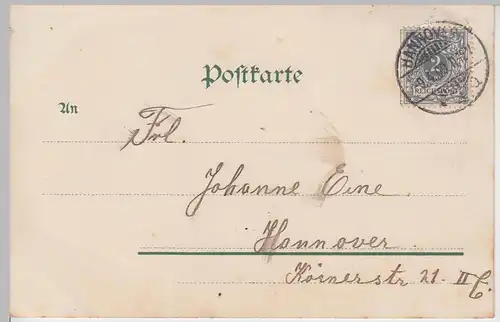 HANNOVER
REICHSPOST
Postkarte
An
Frl.
Johanne Eine
Hannover.
Körnerstr 21 II